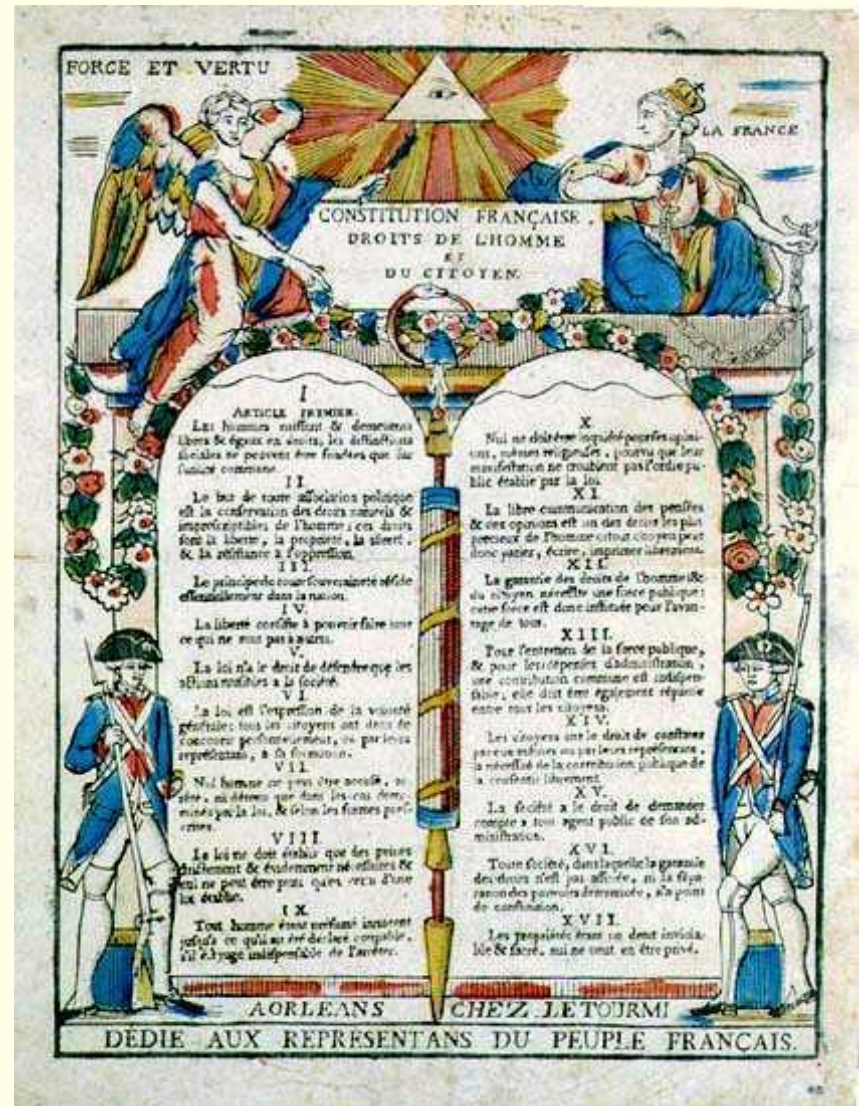 FORCE ET VERTU
LA FRANCE
CONSTITUTION FRANÇAISE.
DROITS DE L'HOMME
ET
DU CITOYEN.
I
ARTICLE PREMIER.
Les hommes naissent & demeurent
libres & égaux en droits, les distinctions
sociales ne peuvent être fondées que sur
l'utilité commune.
II.
Le but de toute association politique
est la conservation des droits naturels &
imprescriptibles de l'homme; ces droits
sont la liberté, la propriété, la sûreté,
& la résistance à l'oppression.
III.
Le principe de toute souveraineté réside
essentiellement dans la nation.
IV.
La liberté consiste à pouvoir faire tout
ce qui ne nuit pas à autrui.
V.
La loi n'a le droit de défendre que les
actions nuisibles à la société.
VI.
La loi est l'expression de la volonté
générale; tous les citoyens ont droit de
concourir personnellement, ou par leurs
représentans, à sa formation.
VII.
Nul homme ne peut être accusé, ar-
rêté, ni détenu que dans les cas déter-
minés par la loi, & selon les formes pres-
crites.
VIII.
La loi ne doit établir que des peines
strictement & évidemment nécessaires &
nul ne peut être puni qu'en vertu d'une
loi établie.
IX.
Tout homme étant présumé innocent
jusqu'à ce qu'il ait été déclaré coupable,
s'il est jugé indispensable de l'arrêter.
X
Nul ne doit être inquiété pour ses opini-
ons, mêmes religieuses, pourvu que leur
manifestation ne troublent pas l'ordre pu-
blic établie par la loi.
XI.
La libre communication des pensées
& des opinions est un des droits les plus
précieux de l'homme tout citoyen peut
donc parler, écrire, imprimer librement.
XII.
La garantie des droits de l'homme &
du citoyen nécessite une force publique;
cette force est donc instituée pour l'avan-
tage de tous.
XIII.
Pour l'entretien de la force publique,
& pour les dépenses d'administration,
une contribution commune est indispen-
sable; elle doit être également répartie
entre tous les citoyens.
XIV.
Les citoyens ont le droit de constater
par eux mêmes ou par leurs représentans,
la nécessité de la contribution publique de
la consentir librement.
XV.
La société a le droit de demander
compte a tout agent public de son ad-
ministration.
XVI.
Toute société, dans laquelle la garantie
des droits n'est pas assurée, ni la sépa-
ration des pouvoirs déterminée, n'a point
de constitution.
XVII.
Les propriétés étant un droit inviola-
ble & sacré, nul ne peut en être privé.
A ORLEANS CHEZ LETOURMI
DÉDIE AUX REPRESENTANS DU PEUPLE FRANÇAIS.